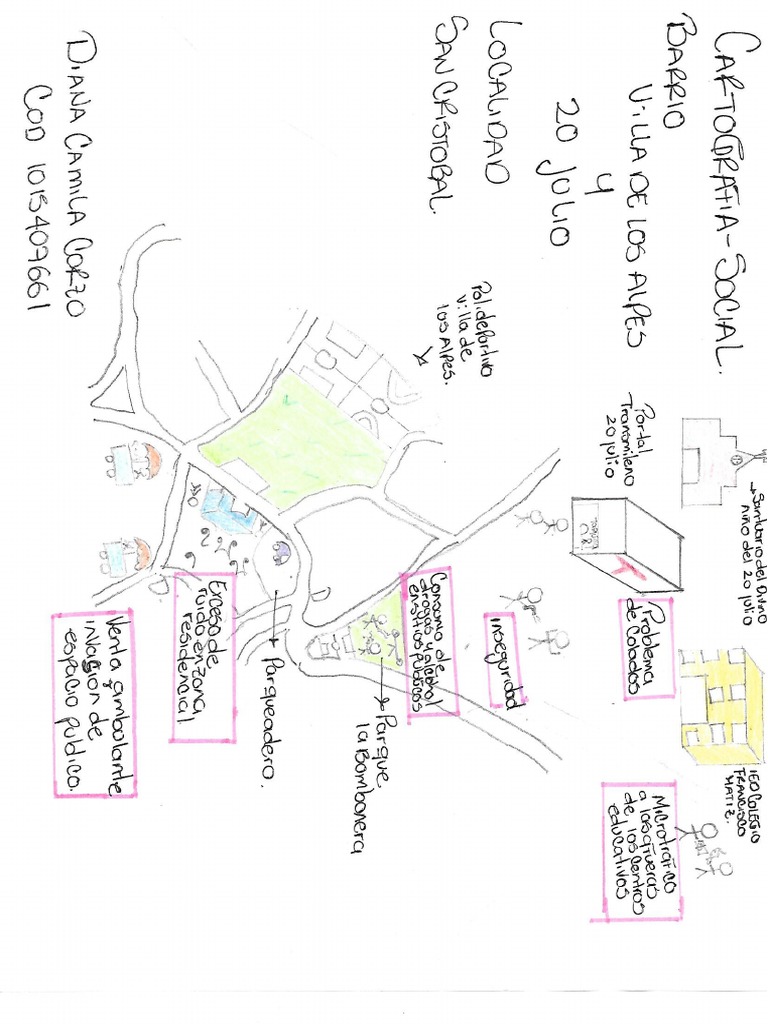 CARTOGRAFIA-SOCIAL.
BARRIO
VILLA DE LOS ALPES
Y
20 JULIO
LOCALIDAD
SAN CRISTOBAL.
DIANA CAMILA CORZO
COD 1015409661
→Santuario del Divino
niño del 20 julio
Portal
Transmilenio
20 julio
Polideportivo
Villa de
los Alpes.
IED COLEGIO
FRANCISCO
MATIZ.
Problema
de Colados
MICROTRAFICO
a las afueras
de los centros
educativos
inseguridad
Consumo de
drogas y alcohol
en sitios publicos
→Parque
la Bombonera
→Parqueadero.
Exceso de
ruido en zona
residencial
Venta ambulante
invasion de
espacio publico.